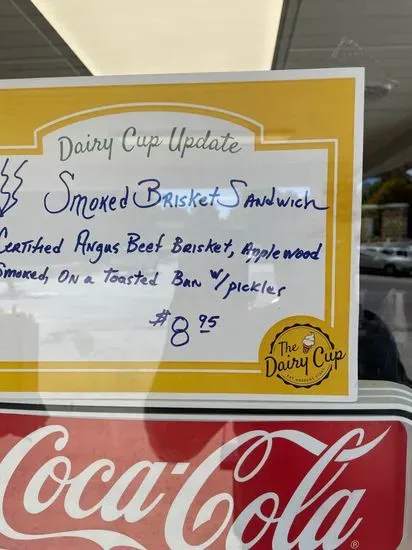 Dairy Cup Update
Smoked Brisket Sandwich
Certified Angus Beef Brisket, Applewood
Smoked, On a Toasted Bun w/pickles
$8.95
The
Dairy Cup
Coca-Cola
®